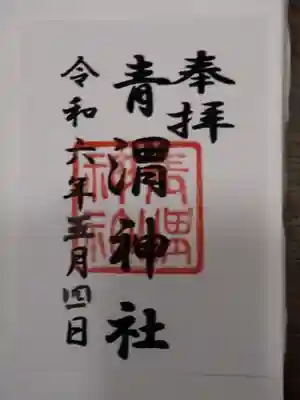 奉拝
青渭神社
令和六年五月四日